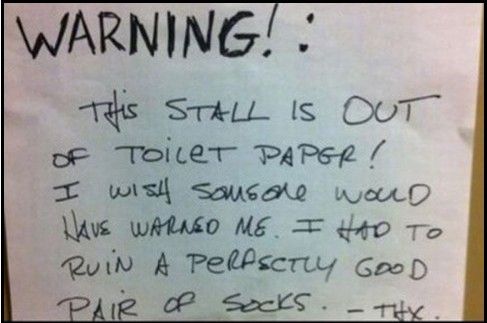 WARNING! :
THIS STALL IS OUT
OF TOILET PAPER!
I WISH SOMEONE WOULD
HAVE WARNED ME. I HAD TO
RUIN A PERFECTLY GOOD
PAIR OF SOCKS. - THX.